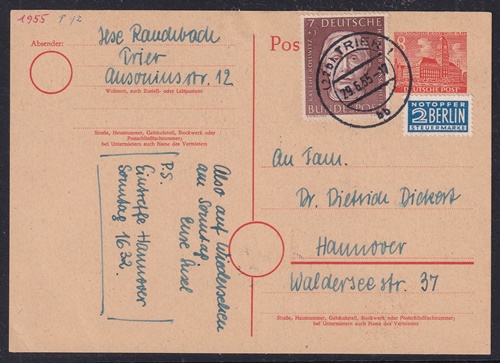 1955 P 12
Absender:
Trier
Ausoniusstr. 12
Wohnort, auch Zustell- oder Leitpostamt
Straße, Hausnummer, Gebäudeteil, Stockwerk oder Postschließfachnummer;
bei Untermietern auch Name des Vermieters
Also auf Wiedersehen
am Sonntag
P.S.
Eintreffe Hannover
Sonntag 16 32.
Pos
7+3
DEUTSCHE
BUNDESPOST
TRIER
29.6.55
bb
8
DEUTSCHE POST
NOTOPFER
2 BERLIN
STEUERMARKE
An Fam.
Dr. Dietrich Dickert
Hannover
Walderseestr. 37
Straße, Hausnummer, Gebäudeteil, Stockwerk oder Postschließfachnummer;
bei Untermietern auch Name des Vermieters